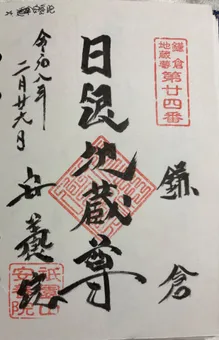 鎌倉
地蔵尊
第廿四番
鎌倉
日限地蔵尊
令和八年
安養院
祇園山
安養院